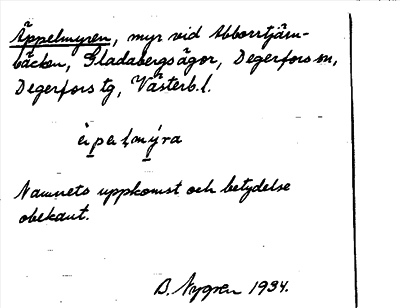 Äppelmyren, myr vid Abborrtjärn-
bäcken, Gladabergsägor, Degerfors sn,
Degerfors tg, Västerb. l.
äpelmýra
Namnets uppkomst och betydelse
obekant.
B. Nygren 1934.